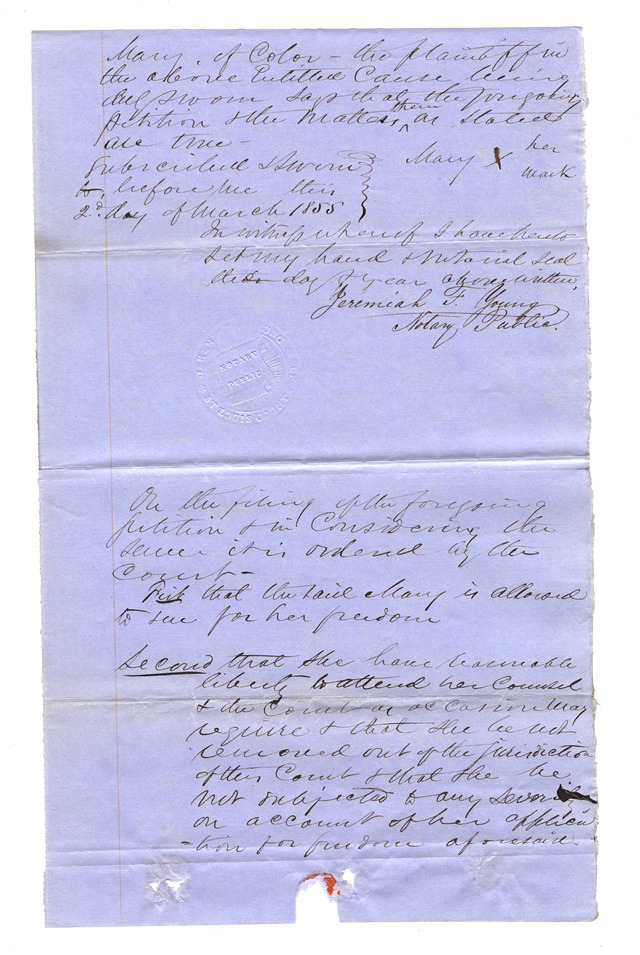 Mary, of Color – the plaintiff in
the above Entitled Cause being
duly sworn says that the foregoing
petition & the matters them as stated
are true –
Subscribed & sworn
to, before me this
2d. day of March 1855
Mary X her
mark
In witness whereof I have hereto
set my hand & notarial seal
the day & year above written,
Jeremiah F. Young
Notary Public.
NOTARY
PUBLIC
ST LOUIS
On the filing of the foregoing
petition & in Considering the
same it is ordered by the
Court –
First that the said Mary is allowed
to sue for her freedom
Second that she have reasonable
liberty to attend her Counsel
& the Court as occasion may
require & that she be not
removed out of the jurisdiction
of this Court & that she be
not subjected to any severity
on account of her applica
-tion for freedom aforesaid.